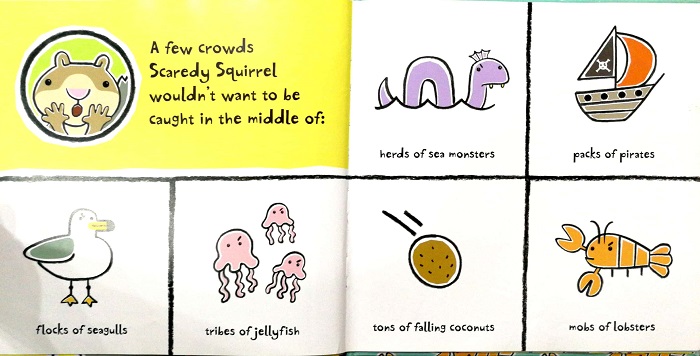 A few crowds
Scaredy Squirrel
wouldn't want to be
caught in the middle of:
herds of sea monsters
packs of pirates
flocks of seagulls
tribes of jellyfish
tons of falling coconuts
mobs of lobsters